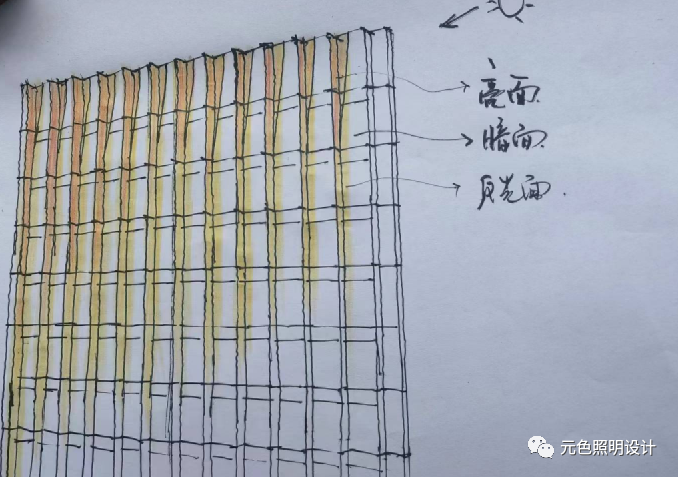 亮面
暗面
反光面.
元色照明设计